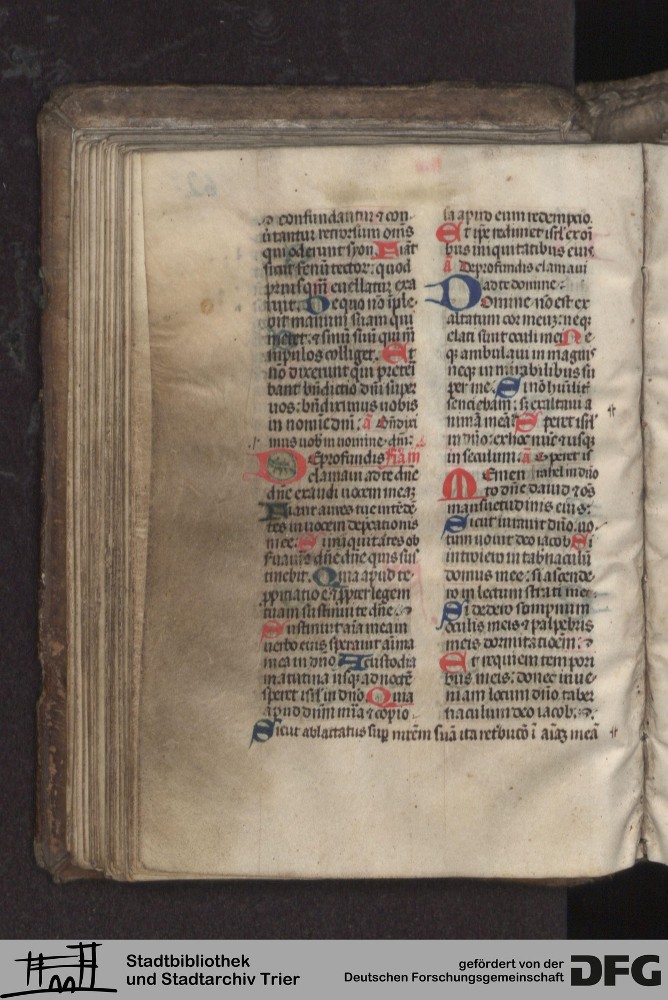 confundantur ⁊ con
vertantur retrorsum oms
qui oderunt syon. Fiāt
sicut fenū tector: quod
priusqm̄ euellatur exa
ruit. De quo nō īple
uit manum suam qui
metet: ⁊ sinū suū qui m
nipulos colliget. Et
nō dixerunt qui preteri
bant bn̄dictio dn̄i super
uos: bn̄diximus uobis
in nomīe dn̄i: a Bn̄dixi
mus uob in nomine dn̄i:
De profundis
clamaui ad te dn̄e
dn̄e exaudi uocem meaꝫ
Fiant aures tue intēdē
tes in uocem dep̄cationis
mee. Si iniquitates ob
seruaueris dn̄e dn̄e quis sus
tinebit. Quia apud te
ꝓpiciatio ē: ⁊ ꝓpter legem
tuam sustinui te dn̄e.
Sustinuit aīa mea in
uerbo eius sperauit aīma
mea in dn̄o A custodia
matutina usqꝫ ad noctē
speret isrl̄ in dn̄o Quia
apud dn̄m mīa ⁊ copio
sa apud eum redemptio.
Et ipē redimet isrl̄ ex oī
bus iniquitatibus eius
a De profundis clamaui
ad te domine:
Domine nō est ex
altatum cor meuꝫ: neqꝫ
elati sunt oculi mei Ne
qꝫ ambulaui in magnis
neqꝫ in mirabilibus su
per me. Si nō humilit̄
senciebam: sꝫ exaltaui a
nimā meā Speret isrl̄
in dn̄o: ex hoc nūc ⁊ usqꝫ
in seculum. a Speret is
Memen rahel in dn̄o
to dn̄e dauid ⁊ oīs
mansuetudinis eius:
Sicut iurauit dn̄o: uo
tum uouit deo iacob Si
introiero in tab̄naculū
domus mee: si ascende
ro in lectum strati mei:
Si dedero sompnum
oculis meis ⁊ palpebris
meis dormitatioēm: ⁊
Et requiem tempori
bus meis: donec inue
niam locum dn̄o taber
naculum deo iacob:
Sicut ablactatus sup mrēm suā ita ret'bucō ī aīaꝫ meā
Stadtbibliothek
und Stadtarchiv Trier
gefördert von der
Deutschen Forschungsgemeinschaft
DFG